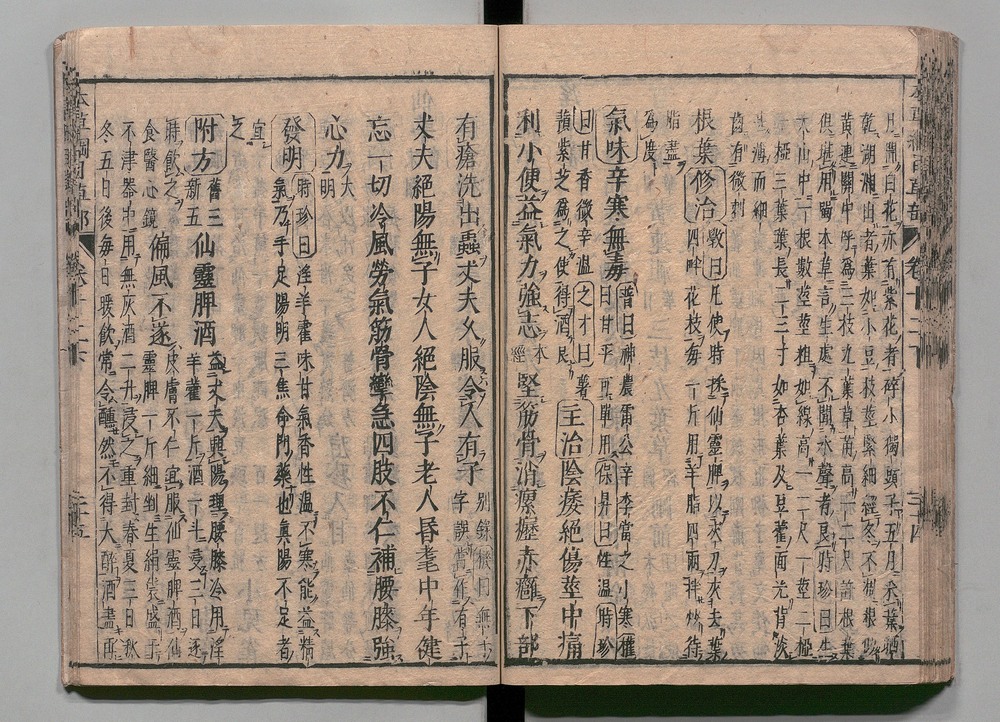 乾湖湘山者葉如小豆枝莖緊細經冬不凋根似
黃連關中呼爲三枝九葉草苗高一二尺許根葉
俱堪用蜀本草言生處不聞水聲者良時珍曰生
大山中一根數莖莖粗如線高一二尺一莖二椏
一椏三葉葉長二三寸如杏葉及豆藿面光背淡
甚薄而細
齒有微刺
根葉修治斅曰凡使時以夾刀夾去葉
四畔花枝每一斤用羊脂四兩拌炒待
脂盡
爲度
氣味辛寒無毒普曰神農雷公辛李當之小寒權
曰甘平可單用保昇曰性溫時珍
曰甘香微辛溫之才曰薯
蕷紫芝爲之使得酒良
主治陰痿絕傷莖中痛
利小便益氣力強志本經堅筋骨消瘰癧赤癰下部
有瘡洗出蟲丈夫久服令人有子別錄機曰無子
字誤當作有子
丈夫絕陽無子女人絕陰無子老人昏耄中年健
忘一切冷風勞氣筋骨攣急四肢不仁補腰膝強
心力大明
發明時珍曰淫羊藿味甘氣香性溫不寒能益精
氣乃手足陽明三焦命門藥也眞陽不足者
宜
之
附方舊三
新五
仙靈脾酒益丈夫興陽理腰膝冷用淫
羊藿一斤酒一斗浸三日逐
時飲之
食醫心鏡
偏風不遂皮膚不仁宜服仙靈脾酒仙
靈脾一斤細剉生絹袋盛于
不津器中用無灰酒二斗浸之重封春夏三日秋
冬五日後每日暖飲常令醺然不得大醉酒盡再